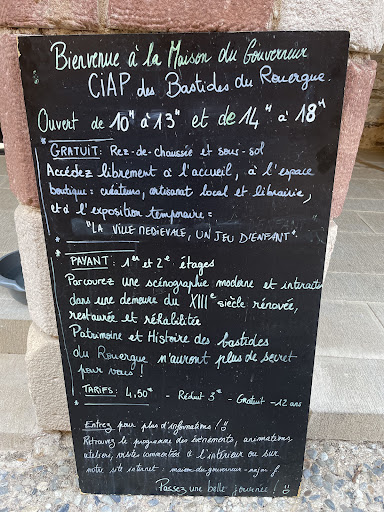 Bienvenue à la Maison du Gouverneur
CiAP des Bastides du Rouergue.
Ouvert de 10H à 13H et de 14H à 18H
GRATUIT: Rez-de-chaussée et sous-sol
Accédez librement à l'accueil, à l'espace
boutique: créateurs, artisanat local et librairie,
et à l'exposition temporaire:
"LA VILLE MEDIEVALE, UN JEU D'ENFANT".
PAYANT: 1er et 2e étages
Parcourez une scénographie moderne et interactive
dans une demeure du XIIIe siècle rénovée,
restaurée et réhabilitée
Patrimoine et Histoire des bastides
du Rouergue n'auront plus de secret
pour vous!
TARIFS: 4,50€ - Réduit 3€ - Gratuit -12 ans
Entrez pour plus d'informations!
Retrouvez le programme des événements, animations,
ateliers, visites commentées à l'intérieur ou sur
notre site internet: maison-du-gouverneur-najac.f
Passez une belle journée!